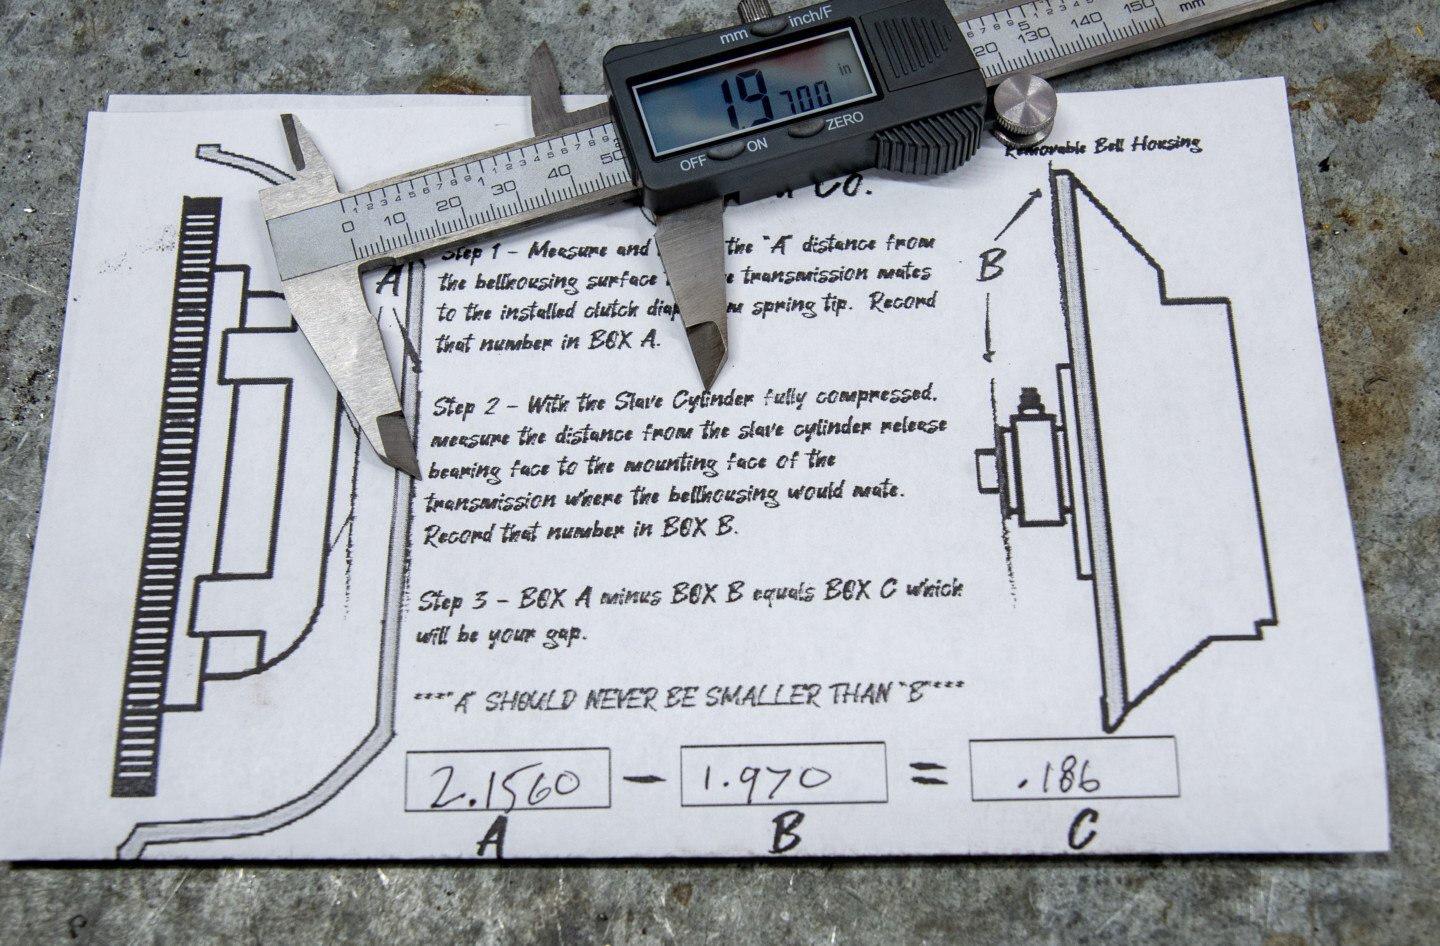 mm inch/F
1.9700 in
OFF ON ZERO
0 10 20 30 40 50
120 130 140 150 mm
Removable Bell Housing
Co.
A
B
Step 1 - Measure and the "A" distance from
the bellhousing surface transmission mates
to the installed clutch spring tip. Record
that number in BOX A.
Step 2 - With the Slave Cylinder fully compressed,
measure the distance from the slave cylinder release
bearing face to the mounting face of the
transmission where the bellhousing would mate.
Record that number in BOX B.
Step 3 - BOX A minus BOX B equals BOX C which
will be your gap.
****"A" SHOULD NEVER BE SMALLER THAN "B"****
2.1560 - 1.970 = .186
A B C